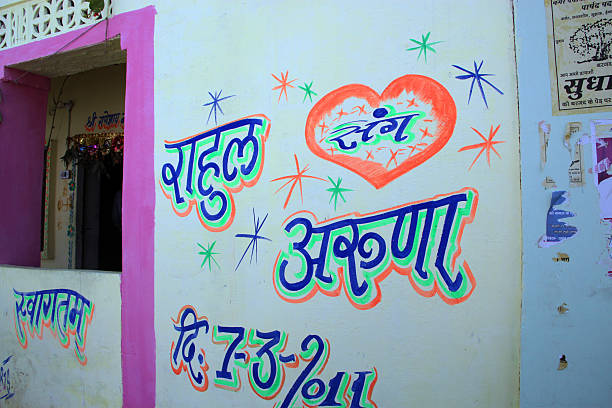 राहुल
संग
अरुणा
दि. 7-3-2011
स्वागतम
श्री गणेशाय नमः
सुधा